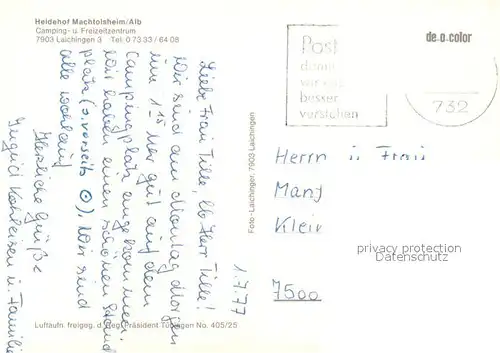 Heidehof Machtolsheim/Alb
Camping- u. Freizeitzentrum
7903 Laichingen 3 Tel. 0 73 33 / 64 08
de-o-color
Post
damit
wir uns
besser
verstehen
732
1.7.77
Liebe Frau Tille, lb Herr Tille!
Wir sind am Montag morgen
um 1 15 Uhr gut auf dem
Campingplatz angekommen.
Wir haben einen schönen Stand
platz (s. vorseits ⊙). Wir sind
alle wohlauf
Herzliche Grüße
Ingrid Kohleisen u. Familie
Foto-Laichinger, 7903 Laichingen
Herrn u Frau
Manf
Klein
7500
privacy protection
Datenschutz
Luftaufn. freigeg. d. Reg. Präsident Tübingen No. 405/25